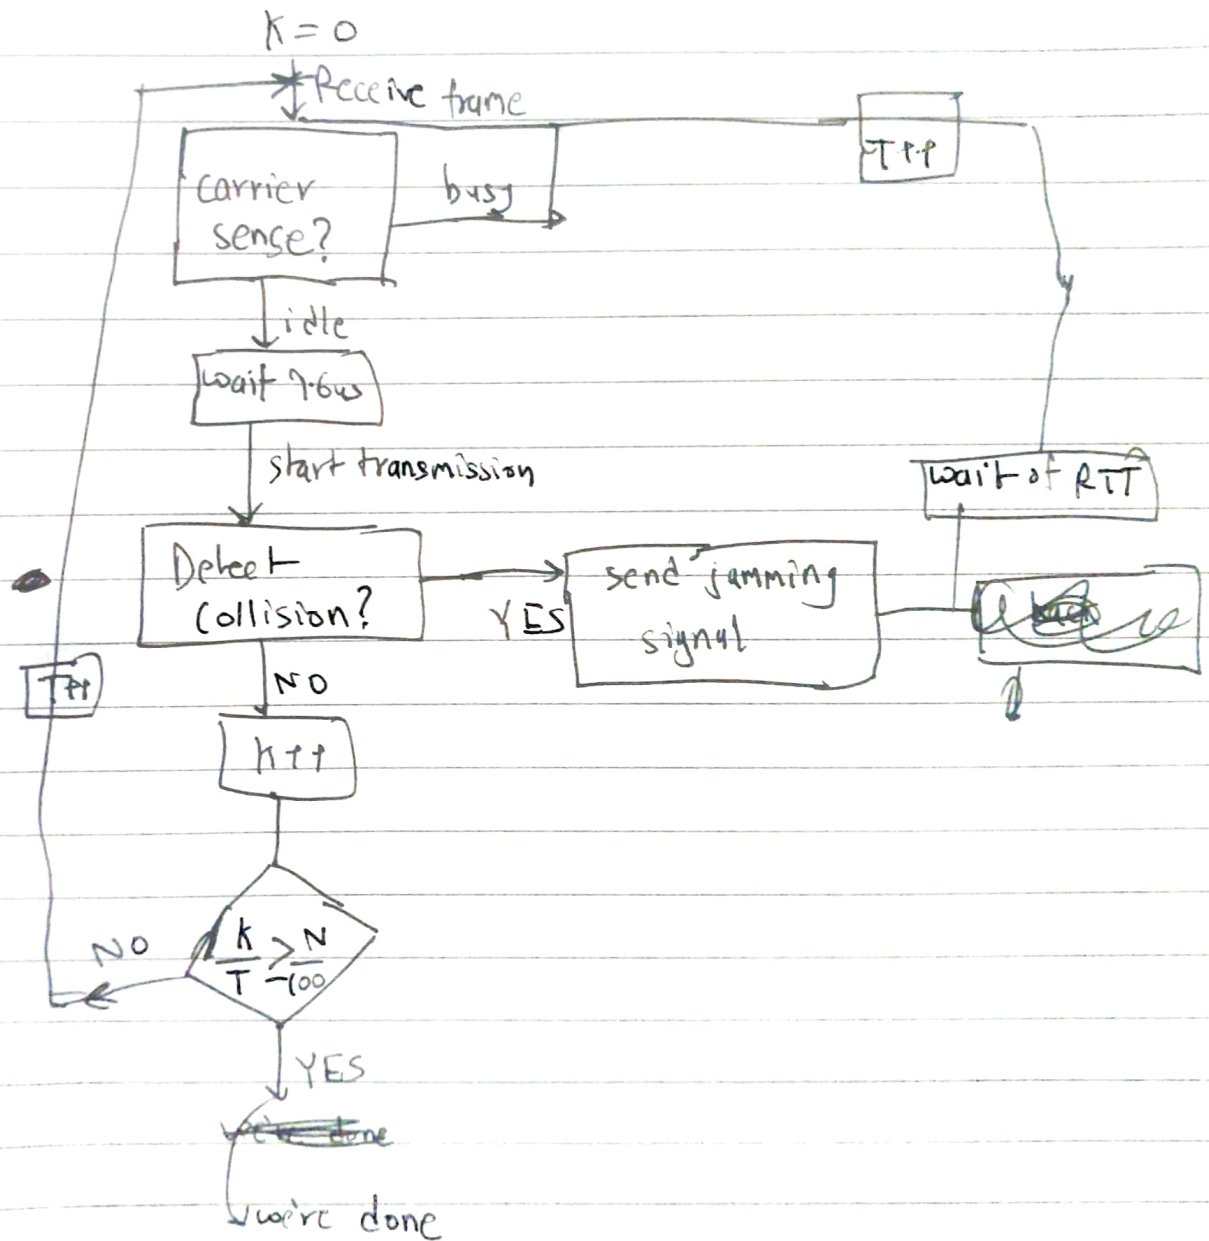 K = 0
Receive frame
T++
carrier
sense?
busy
idle
wait 9.6us
start transmission
wait of RTT
Detect
Collision?
YES
send jamming
signal
NO
T++
K++
NO
K/T > N/100
YES
we're done